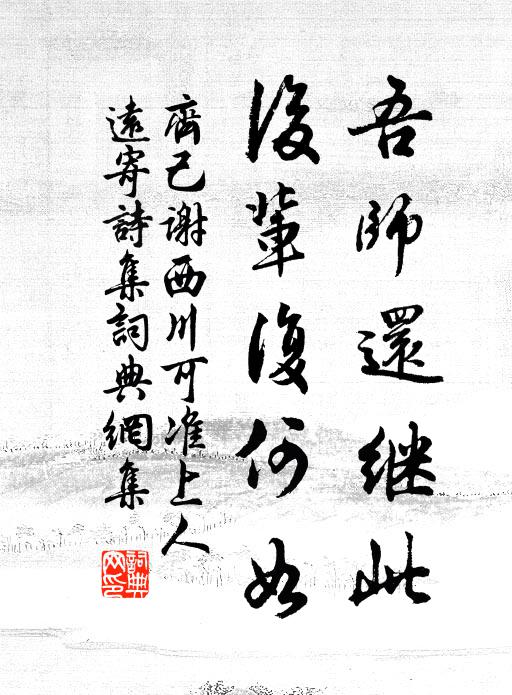 吾師還继此
後輩復何如
齊己谢西川可准上人
遠寄詩集詞典網集
詞典網印